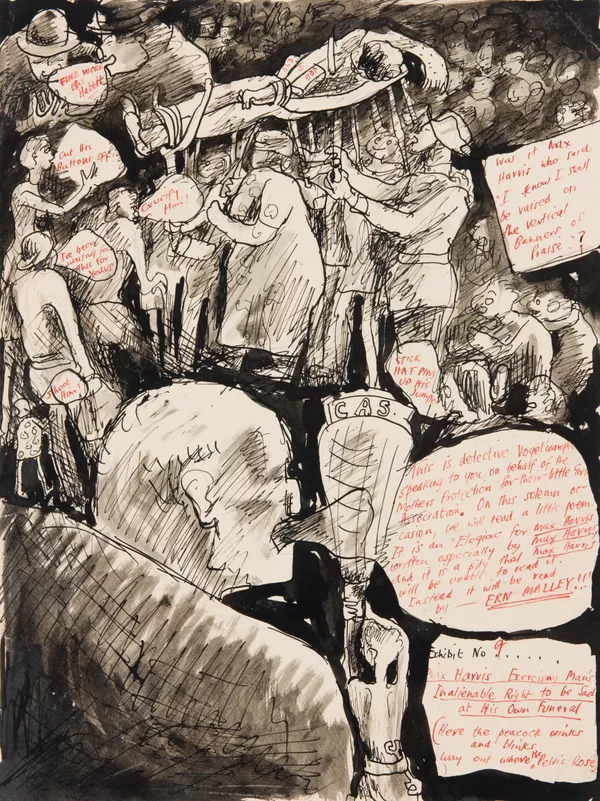 FINE WORK
Cut His
Buttons off!!
Crucify
Him!!
I've been
waiting for
This For
years
Shoot
Him!
STICK
HAT PINS
UP His
Was it Max
Harris who said
"I know I shall
be raised on
The vertical
Banners of
Praise"?
CAS
This is detective
Speaking to you on behalf of the
Mothers Protection-for-their-little
Association. On this solemn oc-
casion, we will read a little poem
It is an "Elegiac for Max Harris
written especially by Max Harris
and it is a pity that Max Harris
will be unable to read it.
Instead it will be read
by — ERN MALLEY!!!
Exhibit No 9......
Max Harris Exercising Man's
Inalienable Right to be Sad
at His Own Funeral
(Here the peacock winks
and blinks
Way out where the Peltic Rose